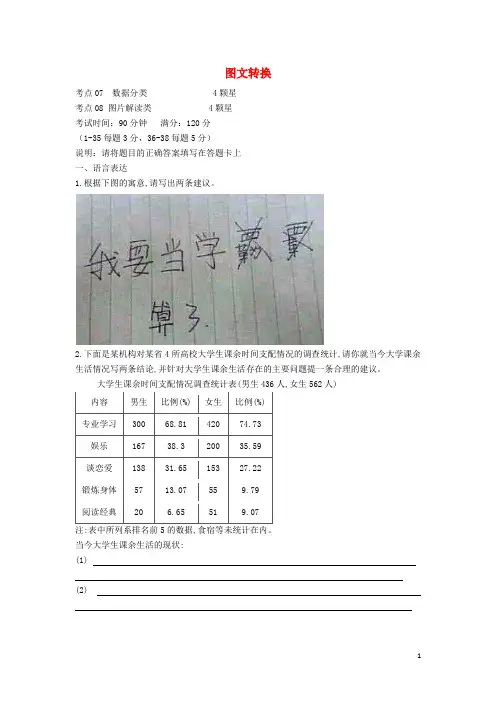 图文转换
考点07 数据分类 4颗星
考点08 图片解读类 4颗星
考试时间:90分钟 满分:120分
(1-35每题3分,36-38每题5分)
说明:请将题目的正确答案填写在答题卡上
一、语言表达
1.根据下图的寓意,请写出两条建议。
我要当学
算了.
2.下面是某机构对某省4所高校大学生课余时间支配情况的调查统计,请你就当今大学课余
生活情况写两条结论,并针对大学生课余生活存在的主要问题提一条合理的建议。
大学生课余时间支配情况调查统计表(男生436人,女生562人)
内容 男生 比例(%) 女生 比例(%)
专业学习 300 68.81 420 74.73
娱乐 167 38.3 200 35.59
谈恋爱 138 31.65 153 27.22
锻炼身体 57 13.07 55 9.79
阅读经典 20 6.65 51 9.07
注:表中所列系排名前5的数据,食宿等未统计在内。
当今大学生课余生活的现状:
(1)
(2)
1